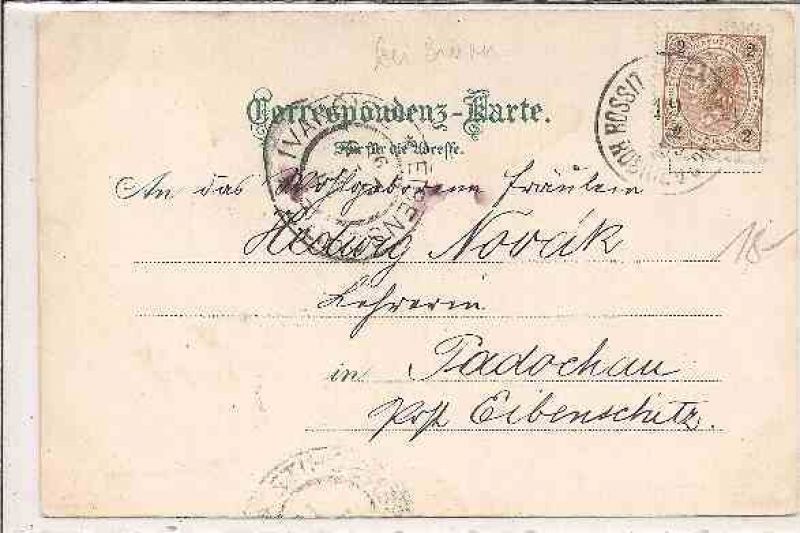 Correspondenz-Karte.
Nur für die Adresse.
2 2
2 2
ROSSITZ
IVAN
EIBENS
An das Wohlgeborene Fräulein
Hedwig Novák
18-
Lehrerin
in Padochau
Post Eibenschitz.